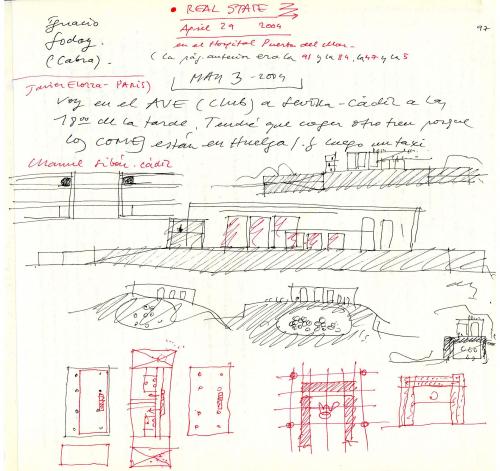 • REAL STATE 3
April 29 2004
97
Ignacio
Godoy.
(Cabra).
en el Hospital Puerta del Mar.
(La pág. anterior era la 91 y la 84, la 47 y la 5
Javier Elorza - PARIS)
MAY 3 - 2004
Voy en el AVE (Club) a Sevilla - Cádiz a las
18:00 de la tarde. Tendré que coger otro tren porque
los están en Huelga / y luego un taxi
Manuel . Cádiz